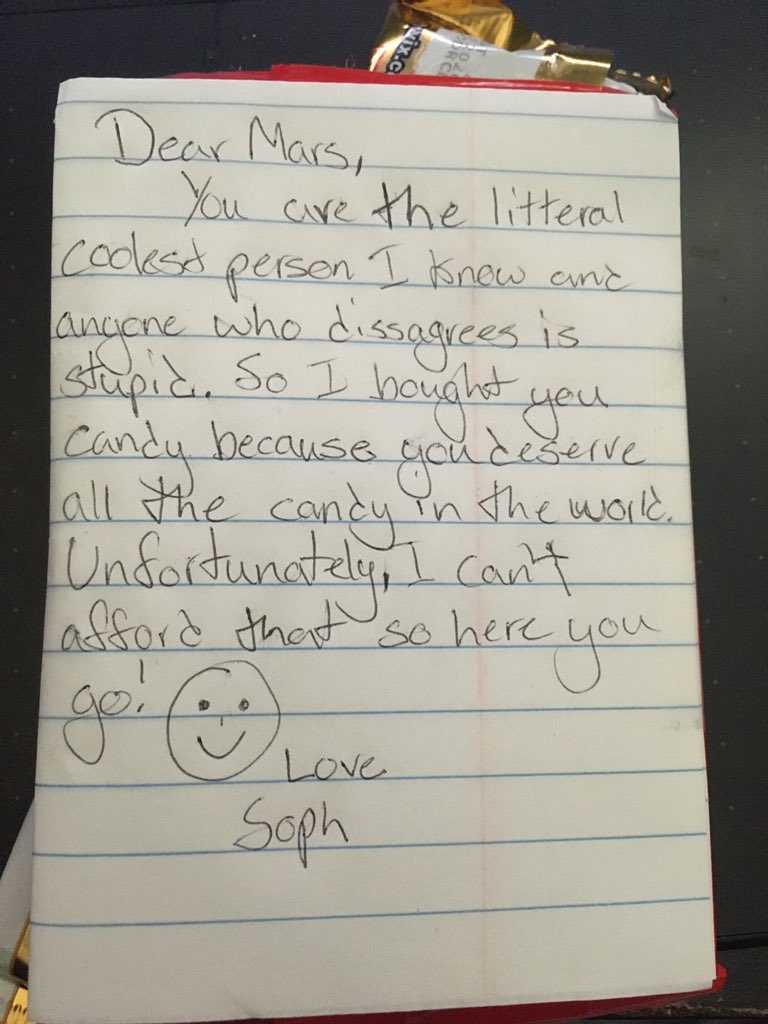 Dear Mars,
You are the litteral
coolest person I know and
anyone who dissagrees is
stupid. So I bought you
candy because you deserve
all the candy in the world.
Unfortunately, I can't
afford that so here you
go!
Love
Soph